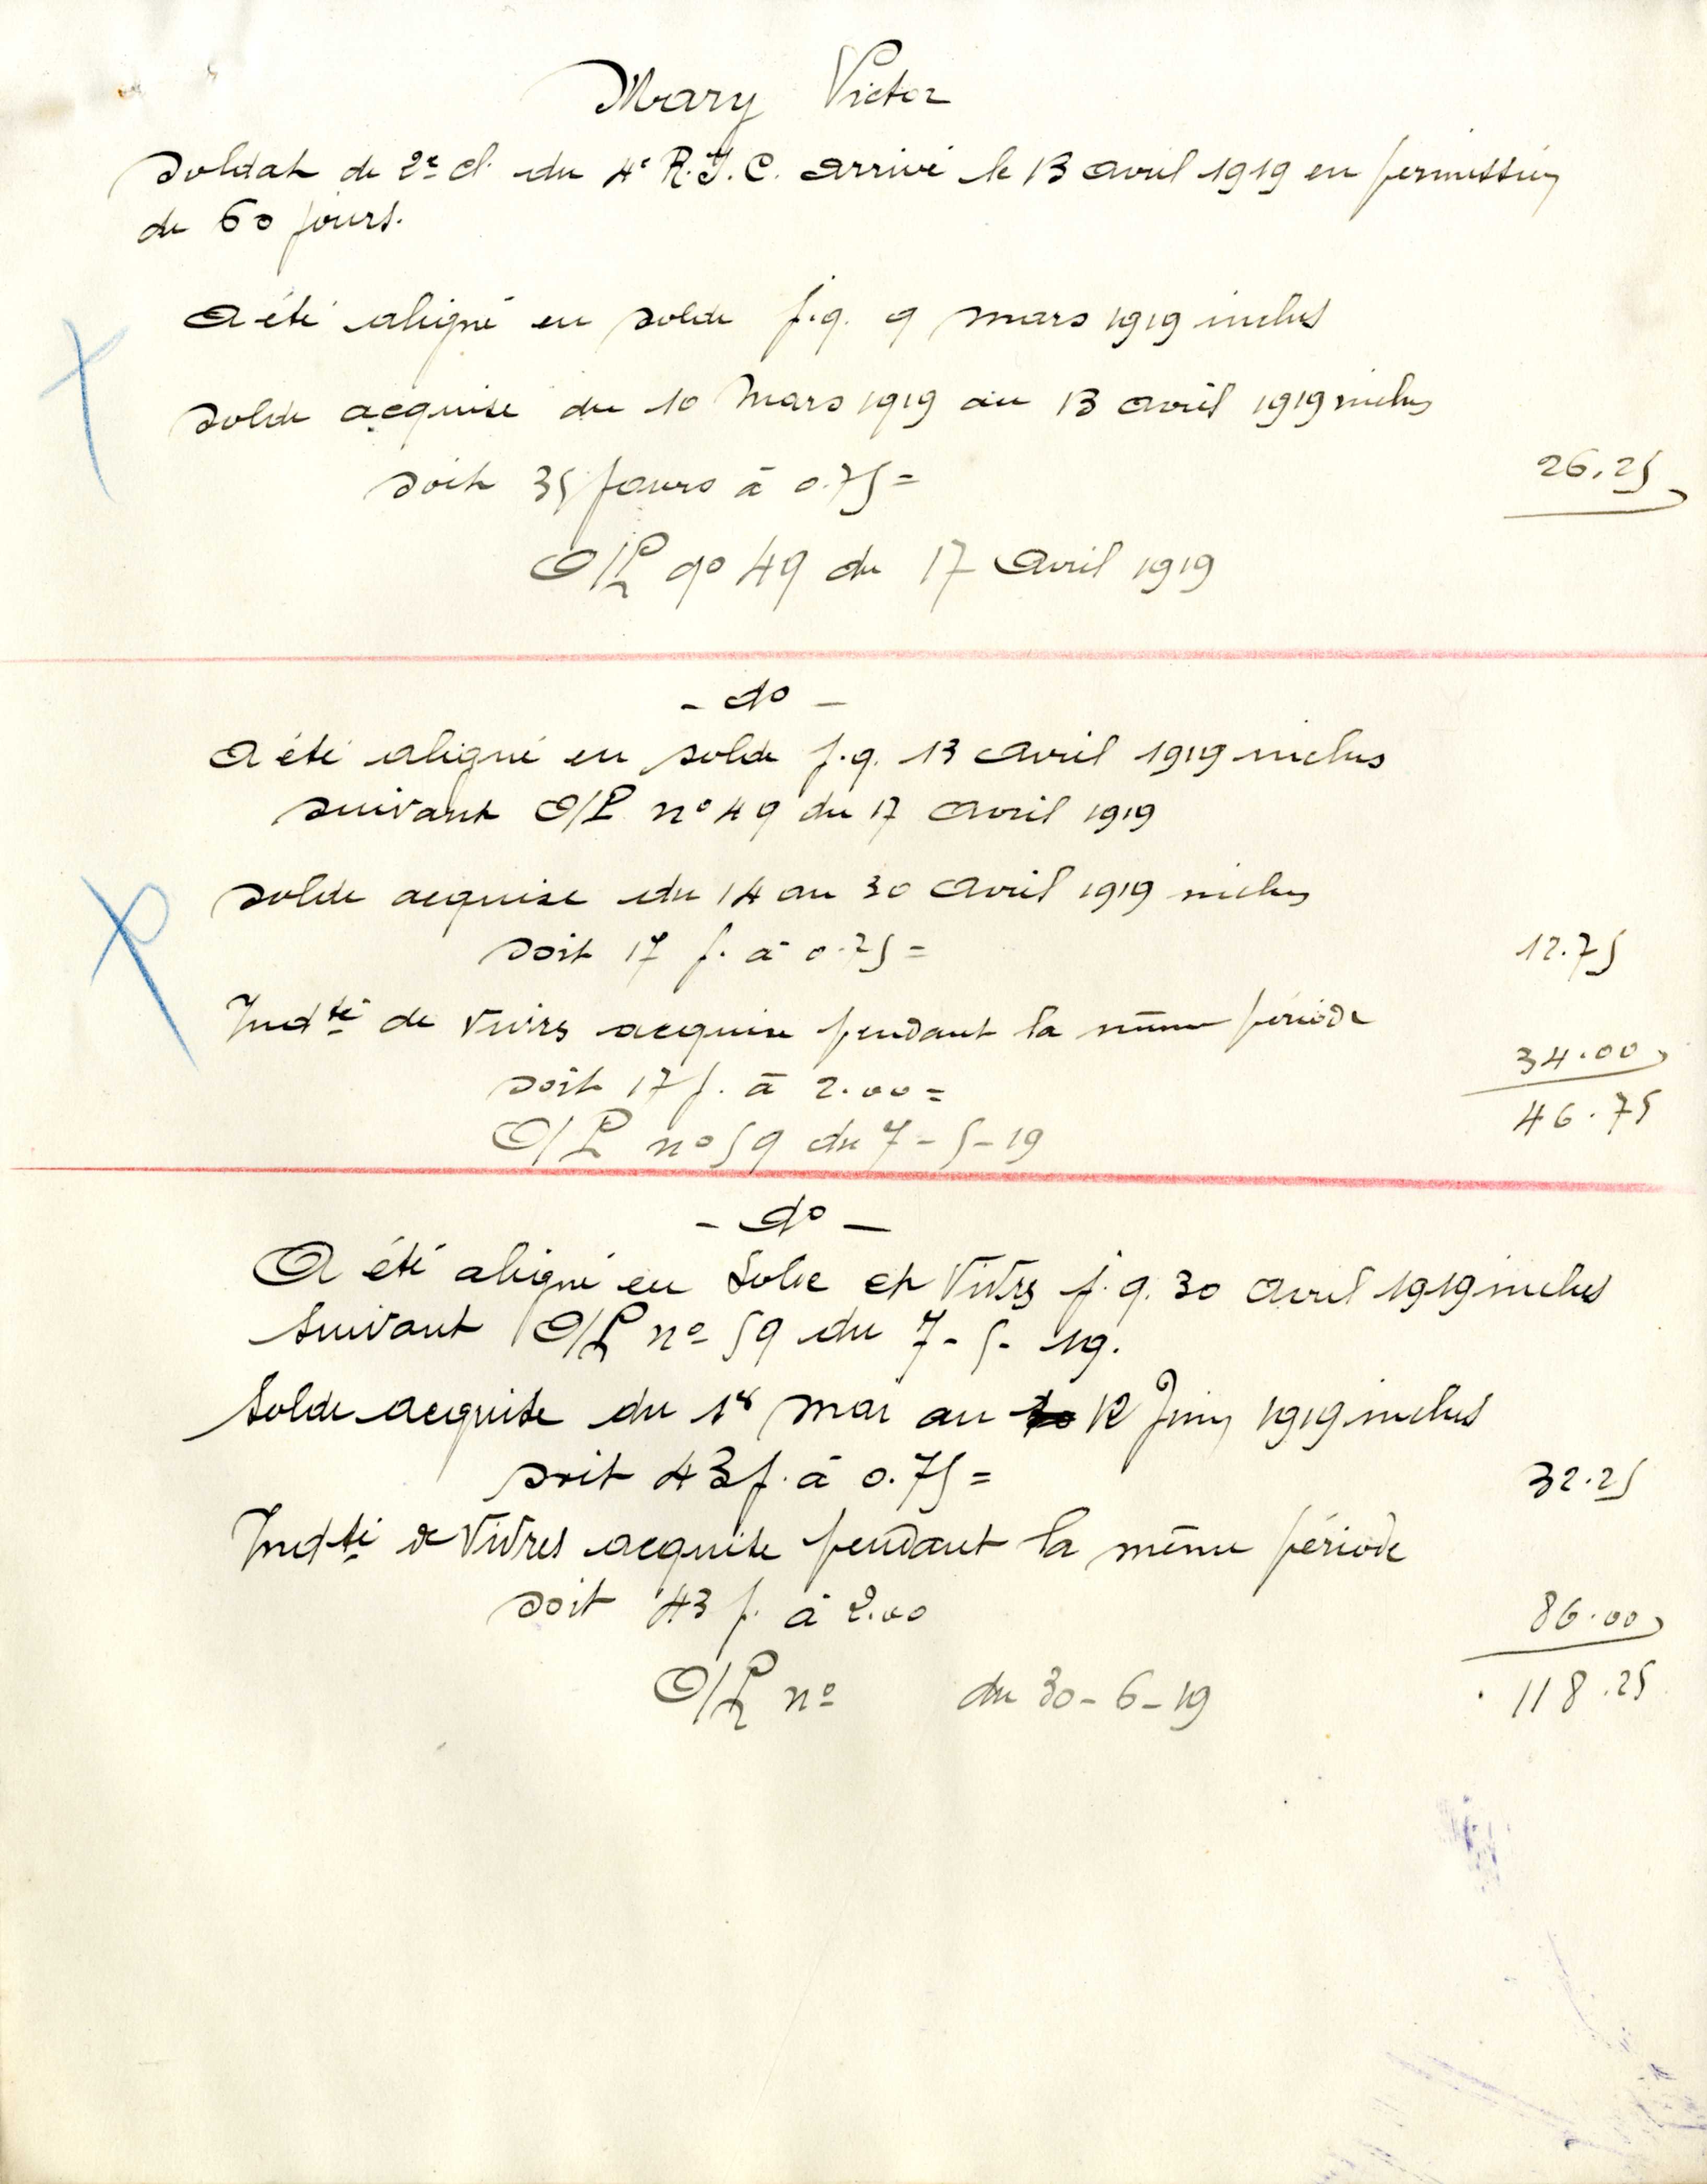 Mary Victor
Soldat de 2e cl. du 4e R.I.C. arrivé le 13 avril 1919 en permission
de 60 jours.
A été aligné en solde j.q. 9 mars 1919 inclus
Solde acquise du 10 Mars 1919 au 13 avril 1919 inclus
Soit 35 jours à 0.75 = 26.25
O/P no 49 du 17 Avril 1919
- do -
A été aligné en solde j.q. 13 avril 1919 inclus
suivant O/P no 49 du 17 avril 1919
Solde acquise du 14 au 30 avril 1919 inclus
Soit 17 j. à 0.75 = 12.75
Indté de vivres acquise pendant la même période
Soit 17 j. à 2.00 = 34.00
46.75
O/P no 59 du 7-5-19
- do -
A été aligné en Solde et Vivres j.q. 30 avril 1919 inclus
Suivant O/P no 59 du 7-5-19.
Solde acquise du 1er mai au 12 Juin 1919 inclus
Soit 43 j. à 0.75 = 32.25
Indté de Vivres acquise pendant la même période
Soit 43 j. à 2.00 86.00
O/P no du 30-6-19 118.25